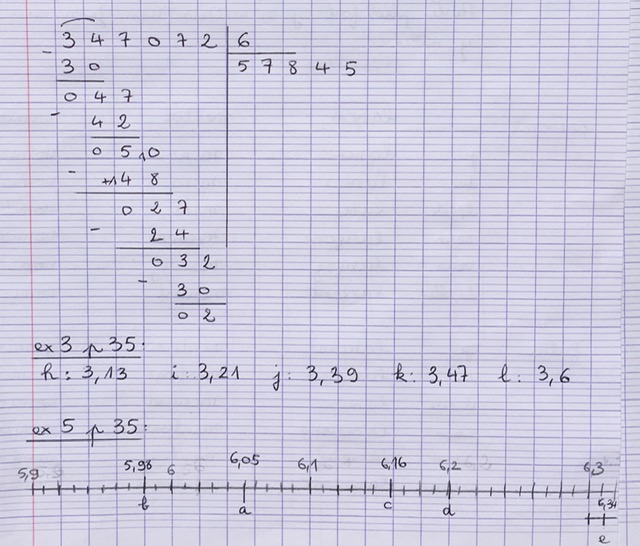 - 3 4 7 0 7 2 | 6
3 0 | 5 7 8 4 5
0 4 7
- 4 2
0 5 10
- +1 4 8
0 2 7
- 2 4
0 3 2
- 3 0
0 2
ex 3 p 35:
h: 3,13 i: 3,21 j: 3,39 k: 3,47 l: 3,6
ex 5 p 35:
5,9 5,98 6 6,05 6,1 6,16 6,2 6,3
b a c d
e